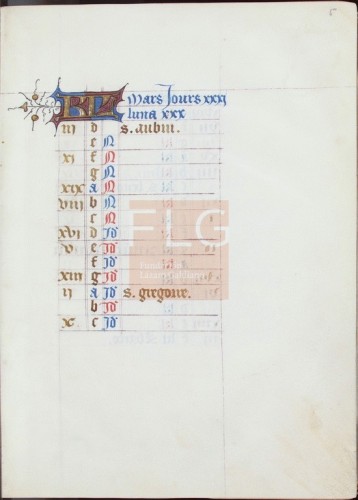 5
KL Mars Jours xxxi
luna xxx
iii d s. aubin.
e N
xi f N
g N
xix a N
viii b N
c N
xvi d Id
v e Id
f Id
xiii g Id
ii a Id s. gregoire.
b Id
x c Id
FLG